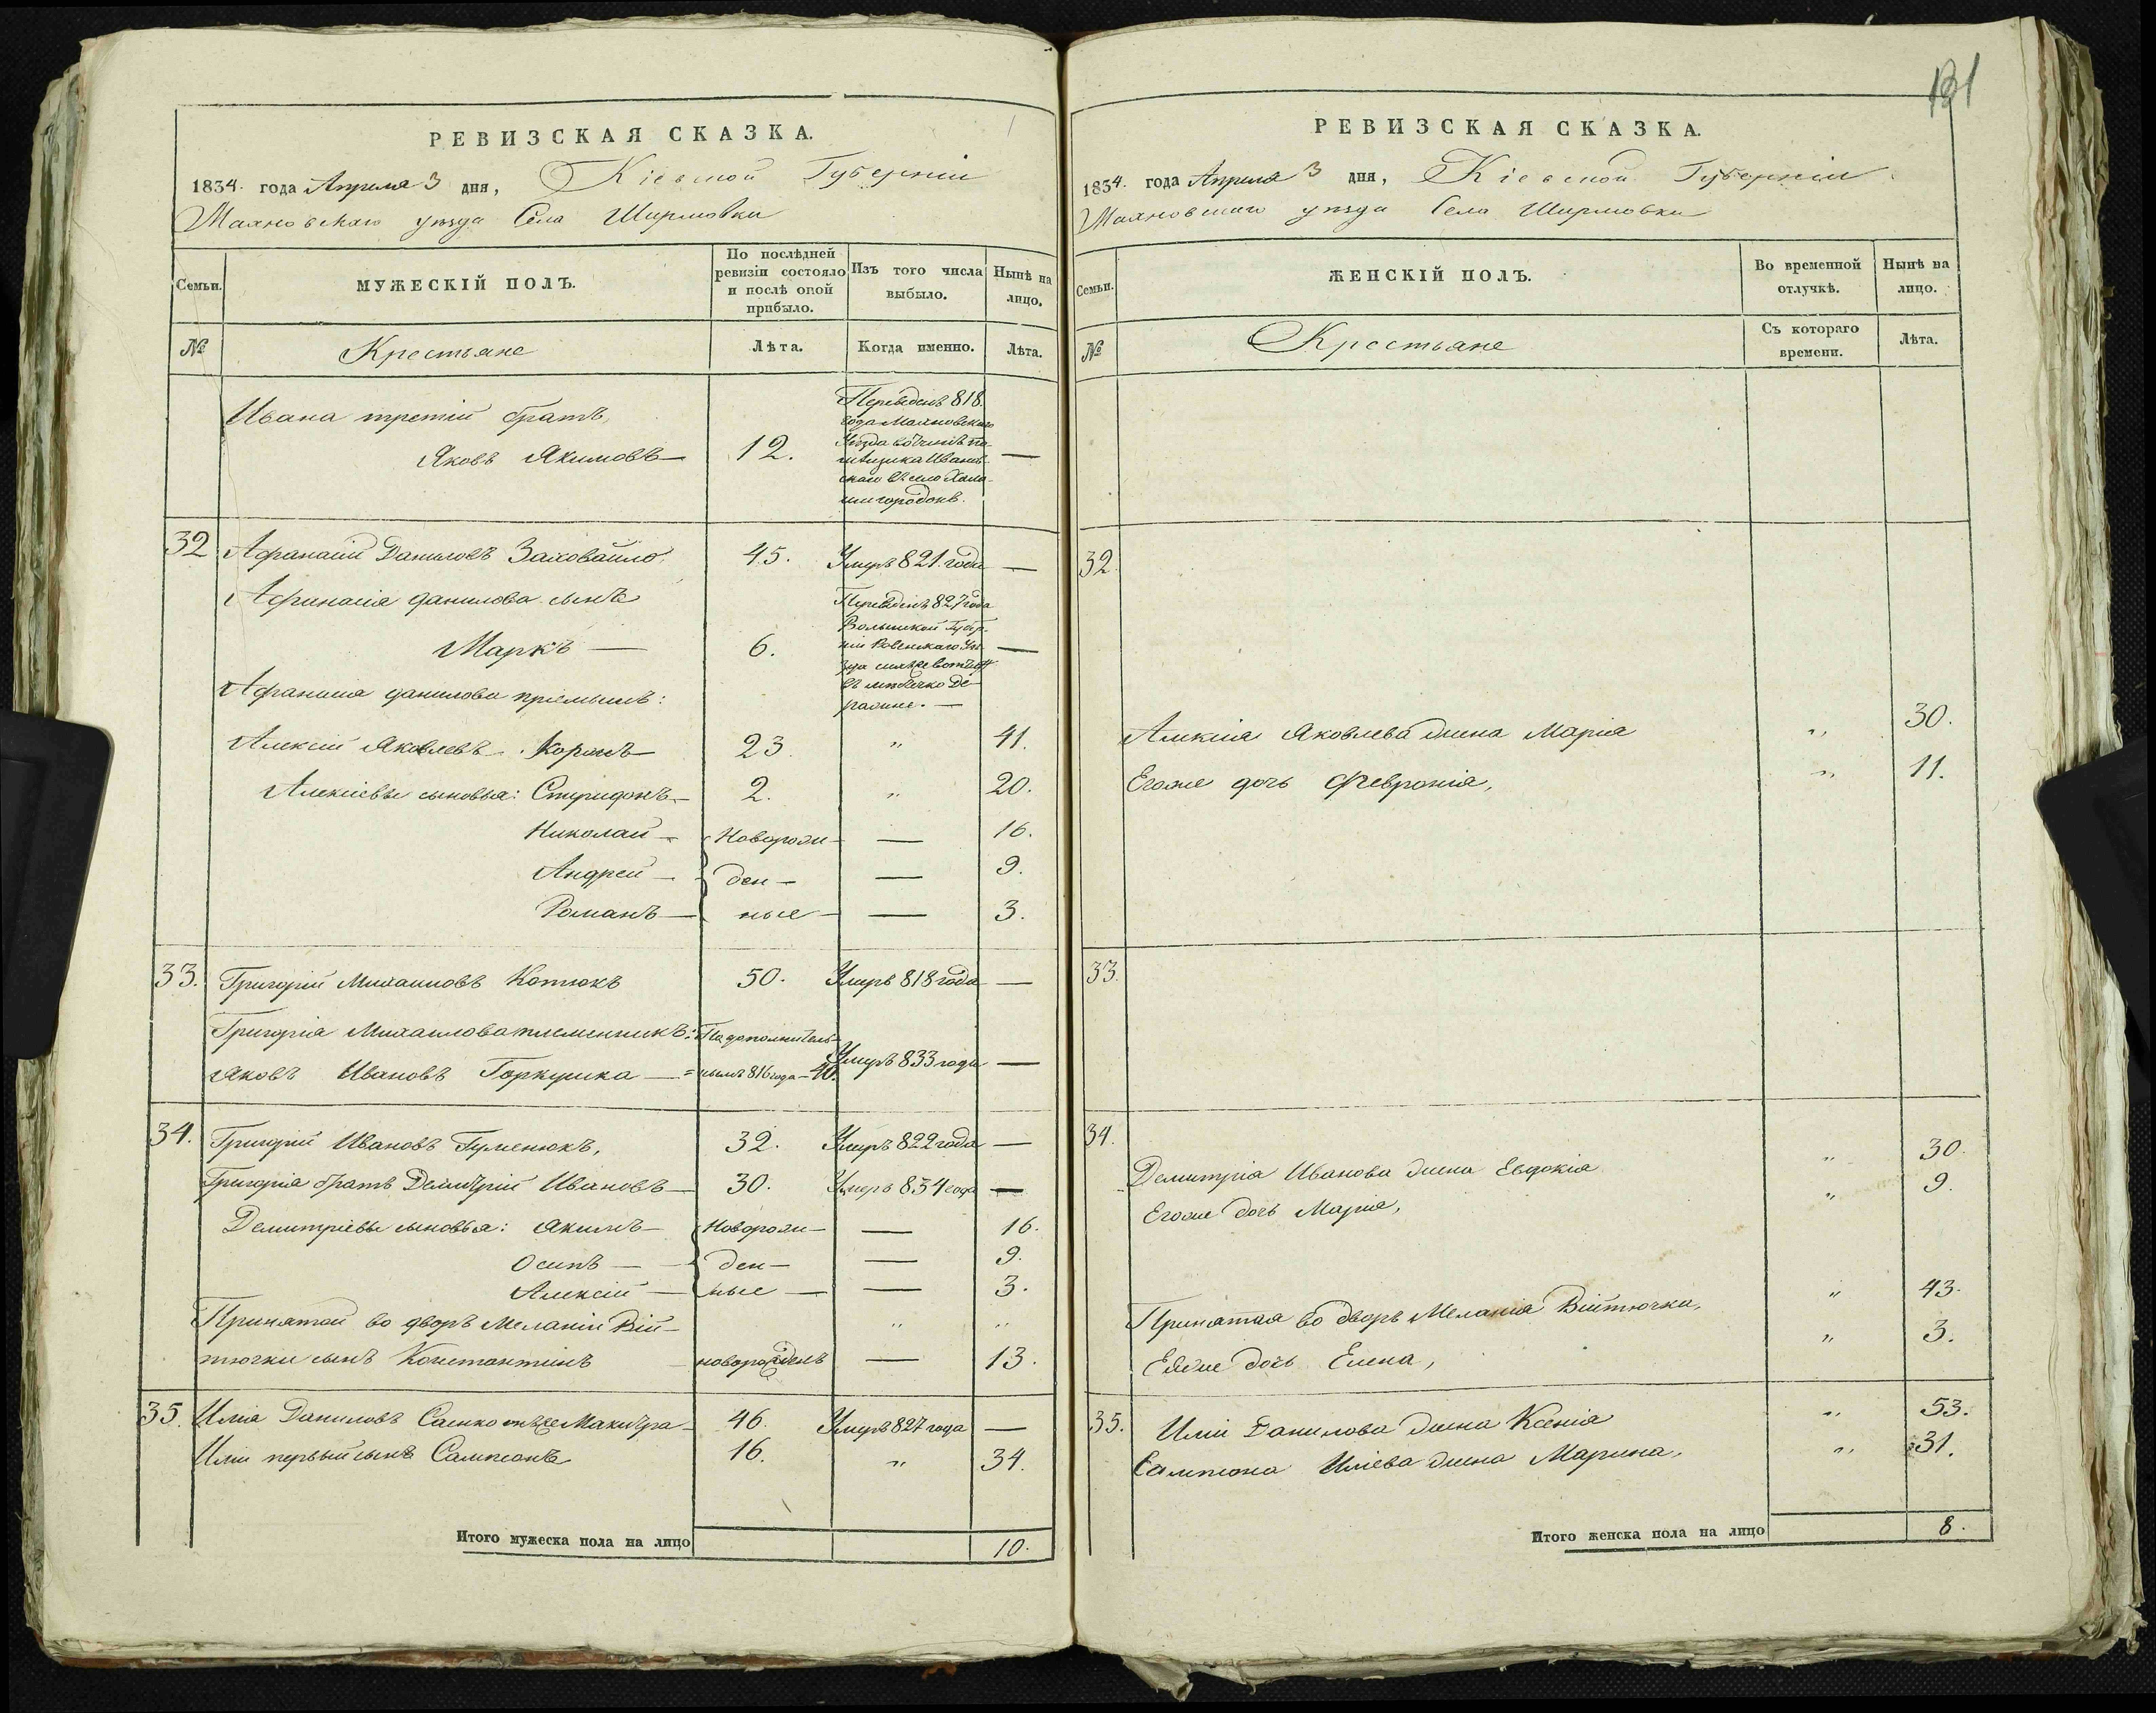 РЕВИЗСКАЯ СКАЗКА.
1834. года Апреля 3 дня, Кіевской Губерніи
Махновскаго уѣзда Села Ширмовки
Семьи. МУЖЕСКІЙ ПОЛЪ. По послѣдней ревизіи состояло и послѣ оной прибыло. Изъ того числа выбыло. Нынѣ на лицо.
№ Крестьяне Лѣта. Когда именно. Лѣта.
Ивана третій братъ,
Яковъ Якимовъ — 12. —
Переведенъ 818.
года Махновскаго
Уѣзда
въ село
городокъ.
32 Афанасій Даниловъ Заховайло, 45. Умеръ 821. года —
Афанасія данилова сынъ
Маркъ — 6. —
Переведенъ 827 года
Волынской Губер-
ніи Ровенскаго Уѣ-
зда
въ мѣстечко Де-
ражне. —
Афанасія данилова пріемышъ:
Алексій Яковлевъ Коранъ — 23. „ 41.
Алексіевы сыновья: Спиридонъ — 2. „ 20.
Николай — Новорож- — 16.
Андрей — ден- — 9.
Романъ — ные — — 3.
33. Григорій Михаиловъ Котюкъ 50. Умеръ 818 года —
Григорія Михаилова племенникъ: По дополнитель-
Яковъ Ивановъ Горкушка — нымъ 816 года — 40. Умеръ 833 года —
34. Григорій Ивановъ Гуменюкъ, 32. Умеръ 822 года —
Григорія братъ Демитрій Ивановъ — 30. Умеръ 834 года —
Демитріевы сыновья: Якимъ — Новорож- — 16.
Осипъ — ден- — 9.
Алексій — ные — — 3.
Принятой во дворъ Меланіи Вій- „ „
тючки сынъ Константинъ новорожденъ — 13.
35. Илія Даниловъ Саенко онъ же Макитра — 46. Умеръ 827 года —
Иліи первый сынъ Сампсонъ 16. „ 34.
Итого мужеска пола на лицо 10.
131
РЕВИЗСКАЯ СКАЗКА.
1834. года Апреля 3 дня, Кіевской Губерніи
Махновскаго уѣзда Села Ширмовки
Семьи. ЖЕНСКІЙ ПОЛЪ. Во временной отлучкѣ. Нынѣ на лицо.
№ Крестьяне Съ котораго времени. Лѣта.
32.
Алексія Яковлева жена Марія „ 30.
Егоже дочь Февронія, „ 11.
33.
34.
Демитрія Иванова жена Евдокія „ 30.
Егоже дочь Марія, „ 9.
Принятая во дворъ Меланія Війтючка, „ 43.
Еяже дочь Елена, „ 3.
35. Иліи Данилова жена Ксенія „ 53.
Сампсона Иліева жена Марина, „ 31.
Итого женска пола на лицо 8.